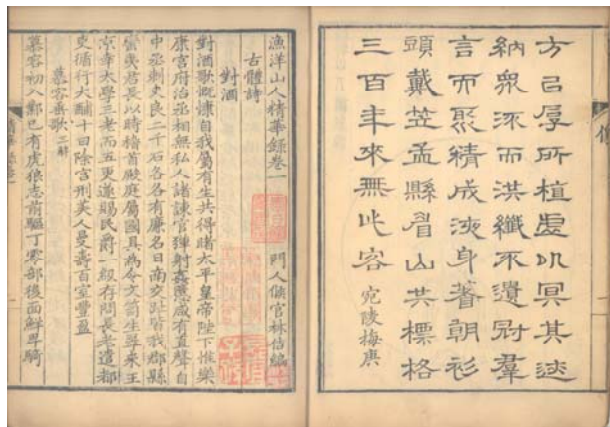 方㠯厚所植虛㠯冥其迹
納眾流而洪纖不遺冠羣
言而聚精成液身著朝衫
頭戴笠孟縣眉山共標格
三百年來無此客 宛陵梅庚
漁洋山人精華錄卷一
門人侯官林佶編
古體詩
對酒
對酒歌慨慷自我屬有生共得睹太平皇帝陛下惟樂
康宮府治丞相無私人諸諫官彈射姦慝咸有直聲自
中丞刺史良二千石各各有廉名日南交趾皆我郡縣
蠻夷君長以時稽首殿庭屬國具為令文生弩來王
京幸太學三老而五更遂賜民爵一級存問長老遣都
吏循行大酺十日除宮刑美人曼壽百室豐盈
慕容垂歌三解
慕容初入鄴已有虎狼志前驅丁零部後面鮮卑騎